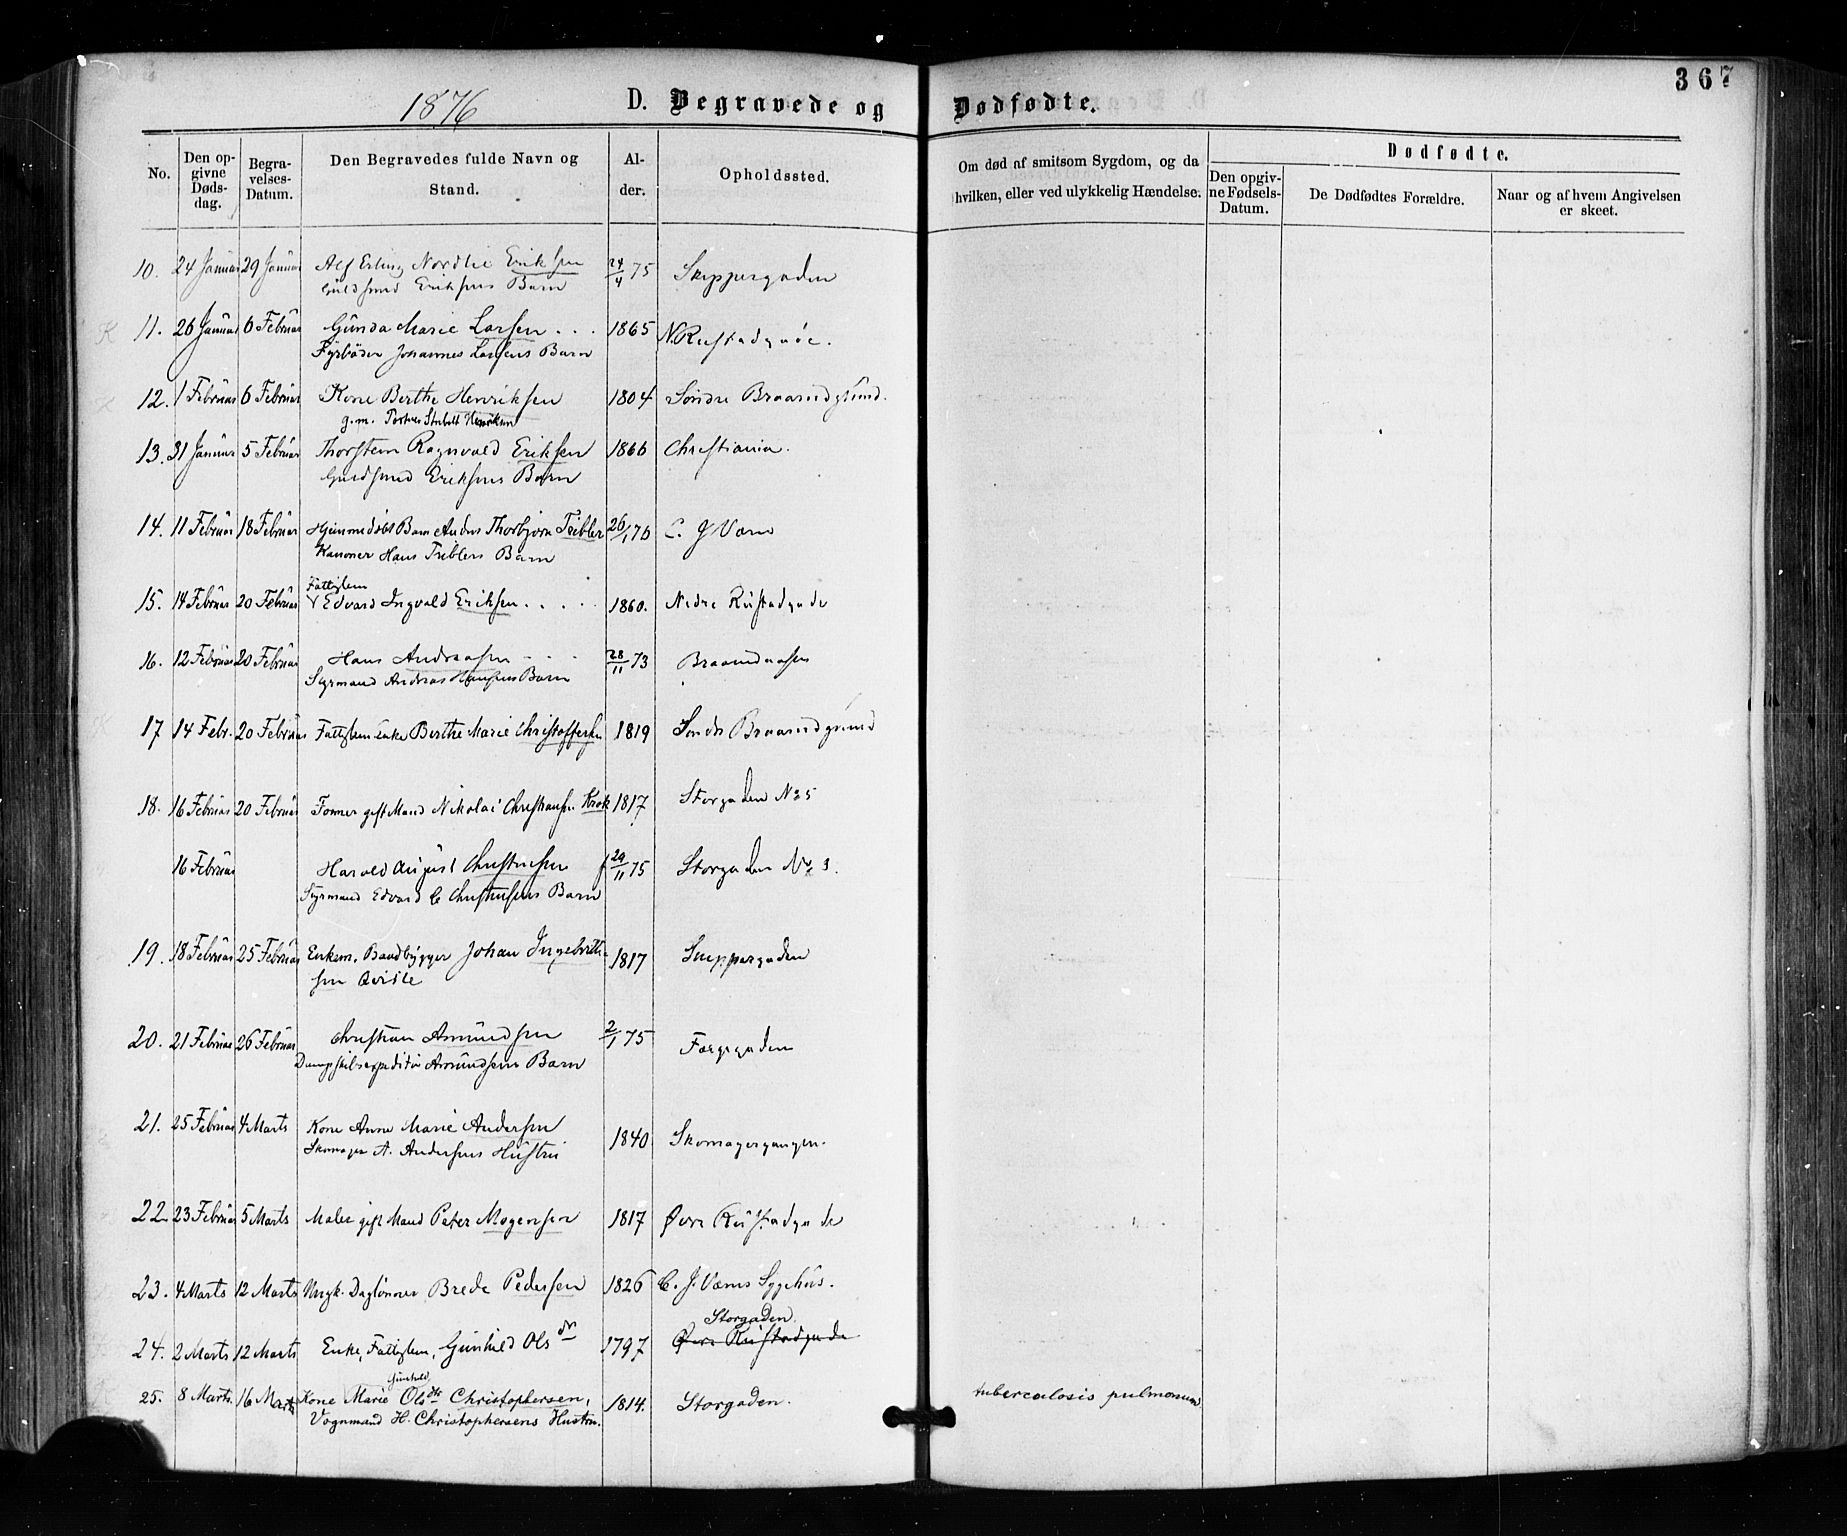 367
1876 D. Begravede og Dødfødte.
No. Den opgivne Dødsdag. Begravelses-Datum. Den Begravedes fulde Navn og Stand. Alder. Opholdssted. Om død af smitsom Sygdom, og da hvilken, eller ved ulykkelig Hændelse. Dødfødte. Den opgivne Fødsels-Datum. De Dødfødtes Forældre. Naar og af hvem Angivelsen er skeet.
10. 24 Januar 29 Januar Alf Erling Nordlie Eriksen 24/4 75 Skippergaden
Guldsmed Eriksens Barn
K 11. 26 Januar 6 Februar Gunda Marie Larsen . . . 1865 N. Rustadgade.
Fyrbøder Johannes Larsens Barn
12. 1 Februar 6 Februar Kone Berthe Henriksen 1804 Søndre Braarudgrund.
g. m. Henriksen
13. 31 Januar 5 Februar Thorstein Ragnvald Eriksen 1866 Christiania.
Guldsmed Eriksens Barn
14. 11 Februar 18 Februar Hjemmedøbt Barn Anders Thorbjørn Tribler 26/1 76 C. J. Værn
Kanoner Hans Triblers Barn
Fattiglem
15. 14 Februar 20 Februar Edvard Ingvald Eriksen . . . . . 1860. Nedre Rustadgade
16. 12 Februar 20 Februar Hans Andreasen - - - 28/11 73 Braarudaasen
Styrmand Andreas Hansens Barn
K 17 14 Febr. 20 Februar Fattiglem Enke Berthe Marie Christoffersen 1819 Søndre Braarudgrund
18. 16 Februar 20 Februar Tømmer gift Mand Nikolai Christiansen Krok 1817 Storgaden No 25
16 Februar Harald August Christensen f 29/11 75 Storgaden No 3.
Styrmand Edvard C Christensens Barn
19. 18 Februar 25 Februar Enkem. Baadbygger Johan Ingebrettsen Qvisle 1817 Skippergaden
20. 21 Februar 26 Februar Christian Amundsen 2/1 75 Færgegaden
Dampskibsexpeditør Amundsens Barn
21. 25 Februar 4 Marts Kone Anne Marie Andersen 1840 Skomagergangen.
Skomager A. Andersens Hustru
22. 23 Februar 5 Marts Maler gift Mand Peter Mogensen 1817 Øvre Rustadgade
23. 4 Marts 12 Marts Ungk. Dagløner Brede Pedersen 1826 C. J. Værns Sygehus.
Storgaden.
24. 2 Marts 12 Marts Enke, Fattiglem, Gunhild Olsdr 1797 Øvre Rustadgade
Gunhild
25. 8 Marts. 16 Marts Kone Marie Olsdtr Christophersen, 1814. Storgaden. tuberculosis pulmonum
Vognmand H. Christophersens Hustru.